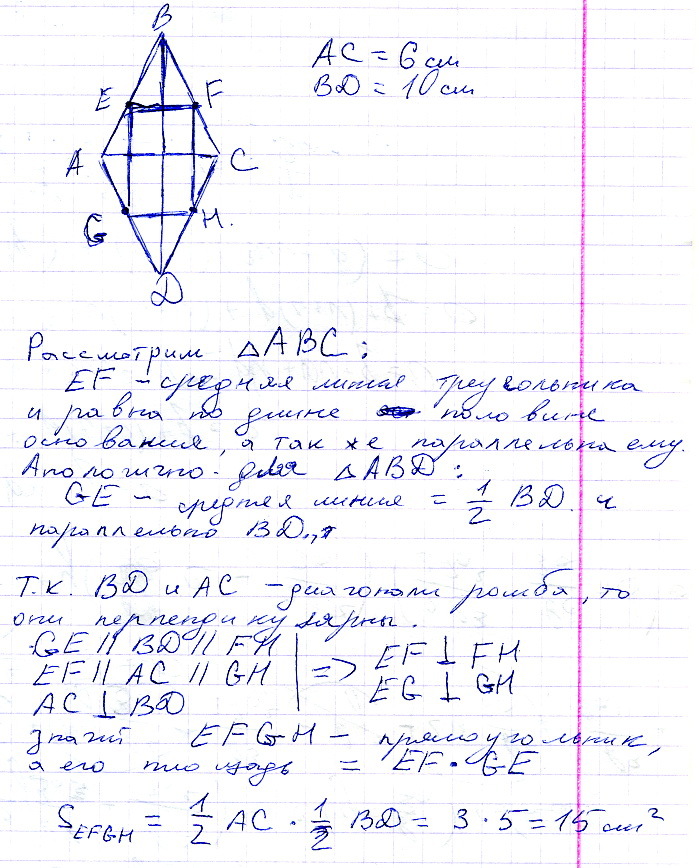 B
AC = 6 см
BD = 10 см
E F
A C
G H.
D
Рассмотрим △ABC:
EF – средняя линия треугольника
и равна по длине половине
основания, а так же параллельна ему.
Аналогично для △ABD:
GE – средняя линия = 1/2 BD и
параллельно BD
Т.к. BD и AC – диагонали ромба, то
они перпендикулярны.
GE || BD || FH
EF || AC || GH
AC ⊥ BD
=> EF ⊥ FH
EG ⊥ GH
значит EFGH – прямоугольник,
а его площадь = EF · GE
S EFGH = 1/2 AC · 1/2 BD = 3 · 5 = 15 см²